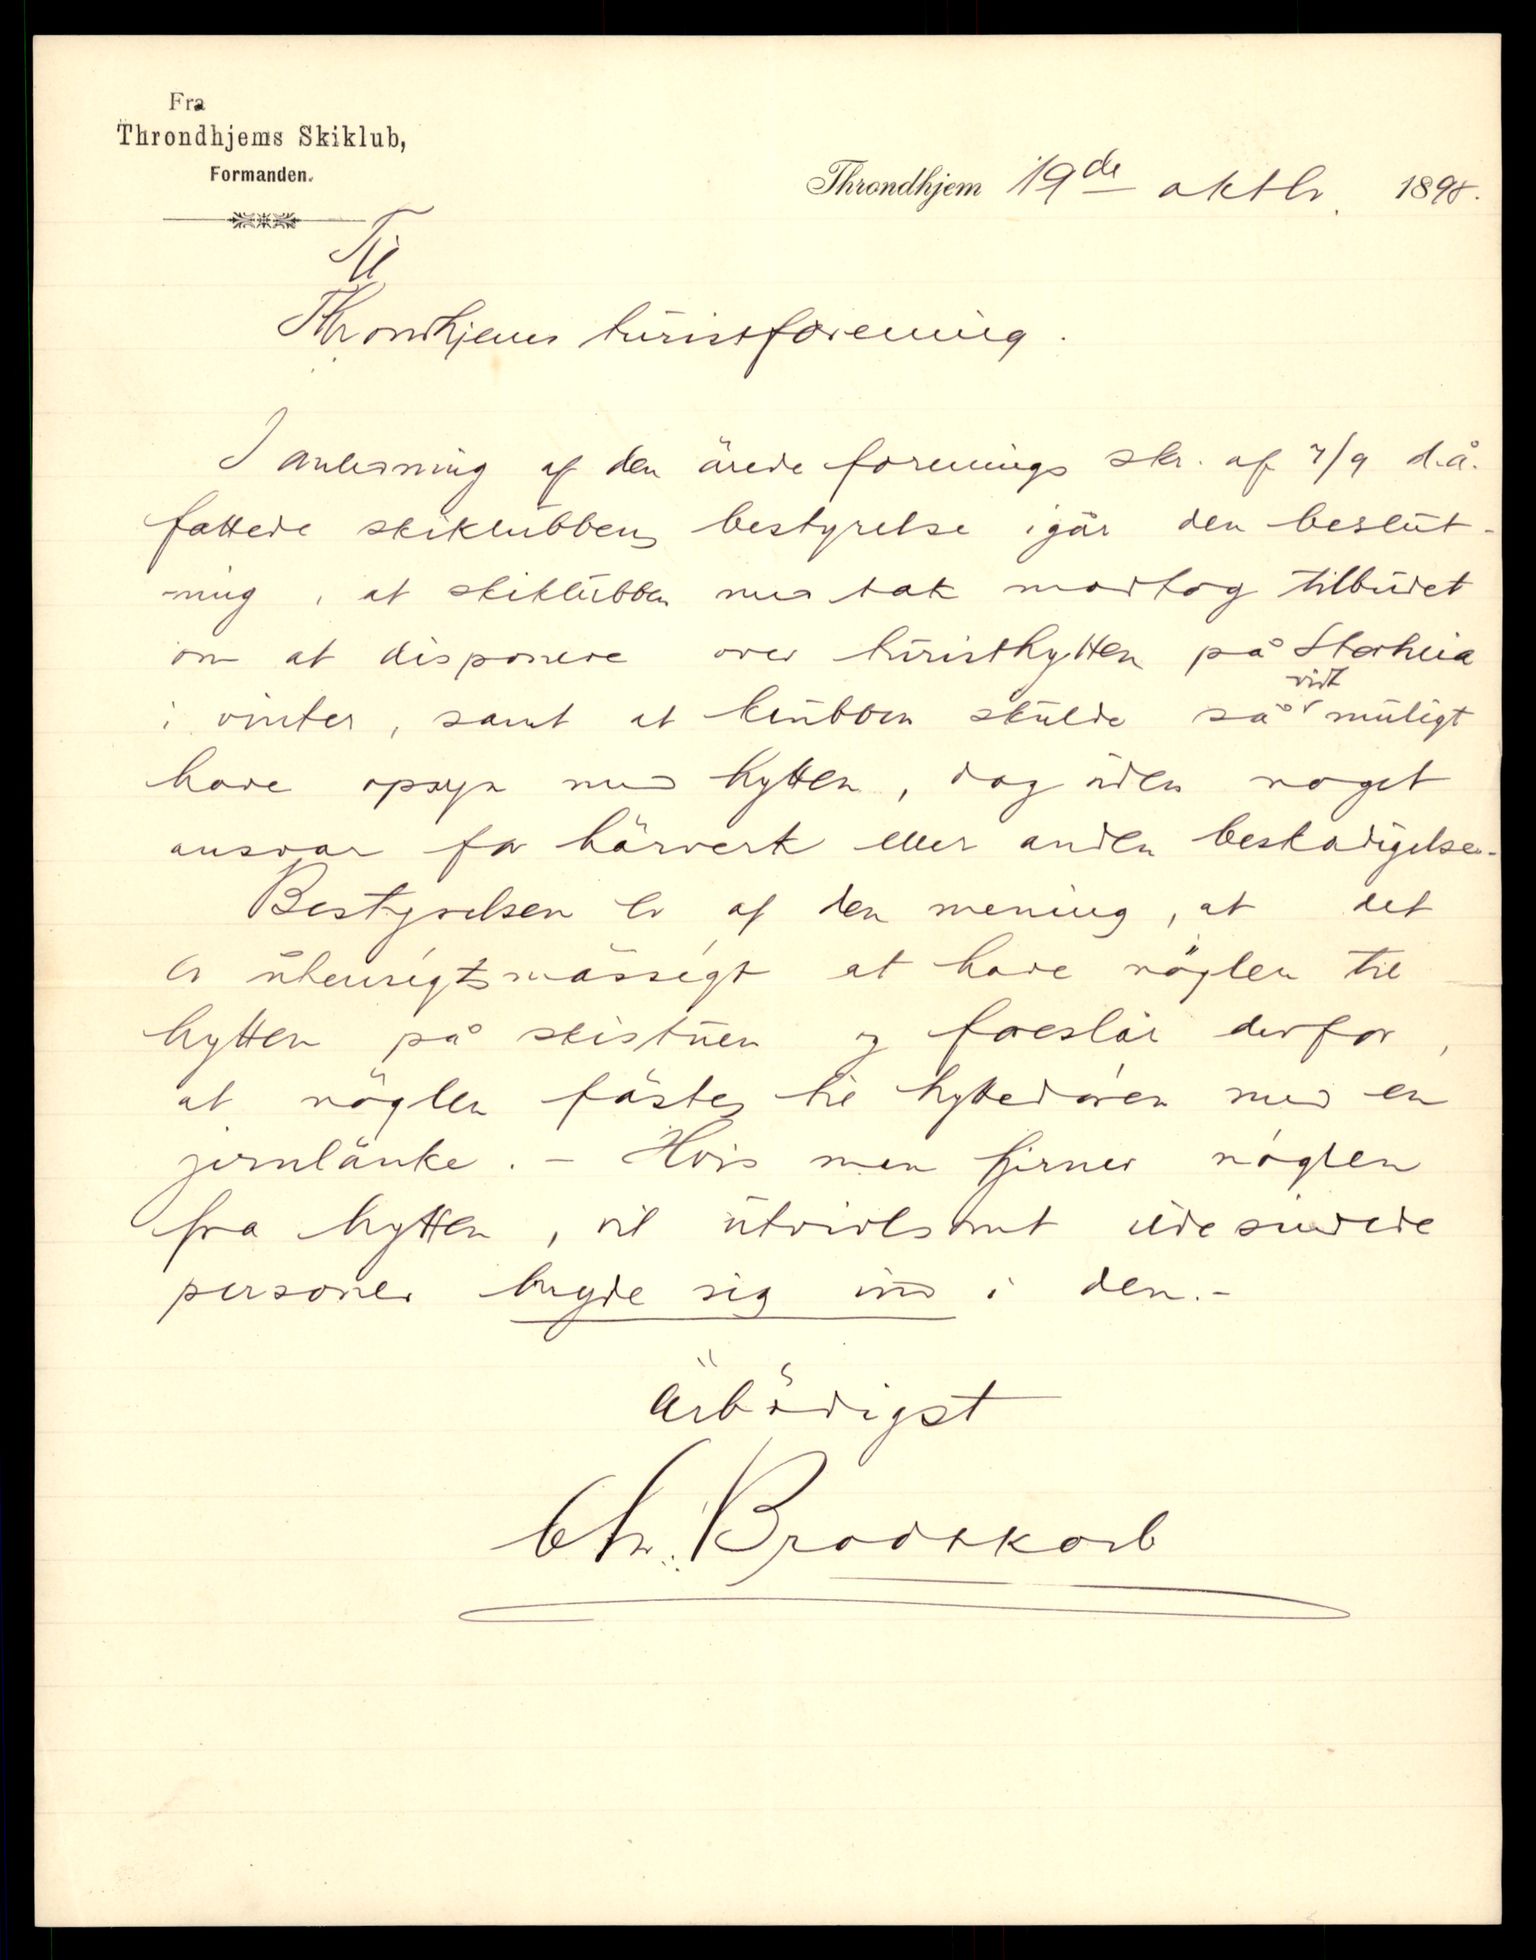 Fra
Throndhjems Skiklub,
Formanden.
Throndhjem 19de oktbr. 1898.
Til
Throndhjems turistforening.
I anledning af den ärede forenings skr. af 7/9 d.å.
fattede skiklubbens bestyrelse igår den beslut-
ning, at skiklubben med tak modtog tilbudet
om at disponere over turisthytten på Storheia
i vinter, samt at klubben skulde så vidt muligt
have opsyn med hytten, dog uden noget
ansvar for härverk eller anden beskadigelse.-
Bestyrelsen er af den mening, at det
er uhensigtsmässigt at have nöglen til
hytten på skistuen og foreslår derfor,
at nöglen fästes til hyttedören med en
jernlänke. - Hvis man fjerner nöglen
fra hytten, vil utvivlsomt ildesindede
personer bryde sig ind i den.-
Ärbödigst
Chr. Brodtkorb